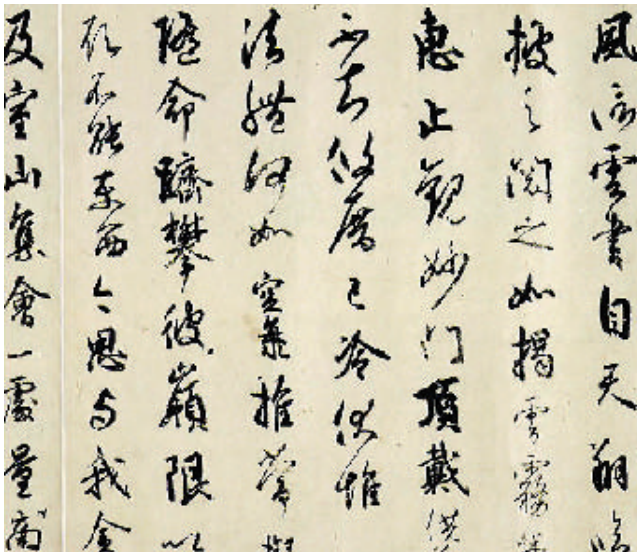 風信雲書自天翔臨
披之閱之如揭雲霧兼
惠止觀妙門頂戴供
不知攸厝已冷伏惟
法體何如空海推常擬
隨命躋攀彼嶺限以
願不能東西今思与我金
及室山集會一處量商